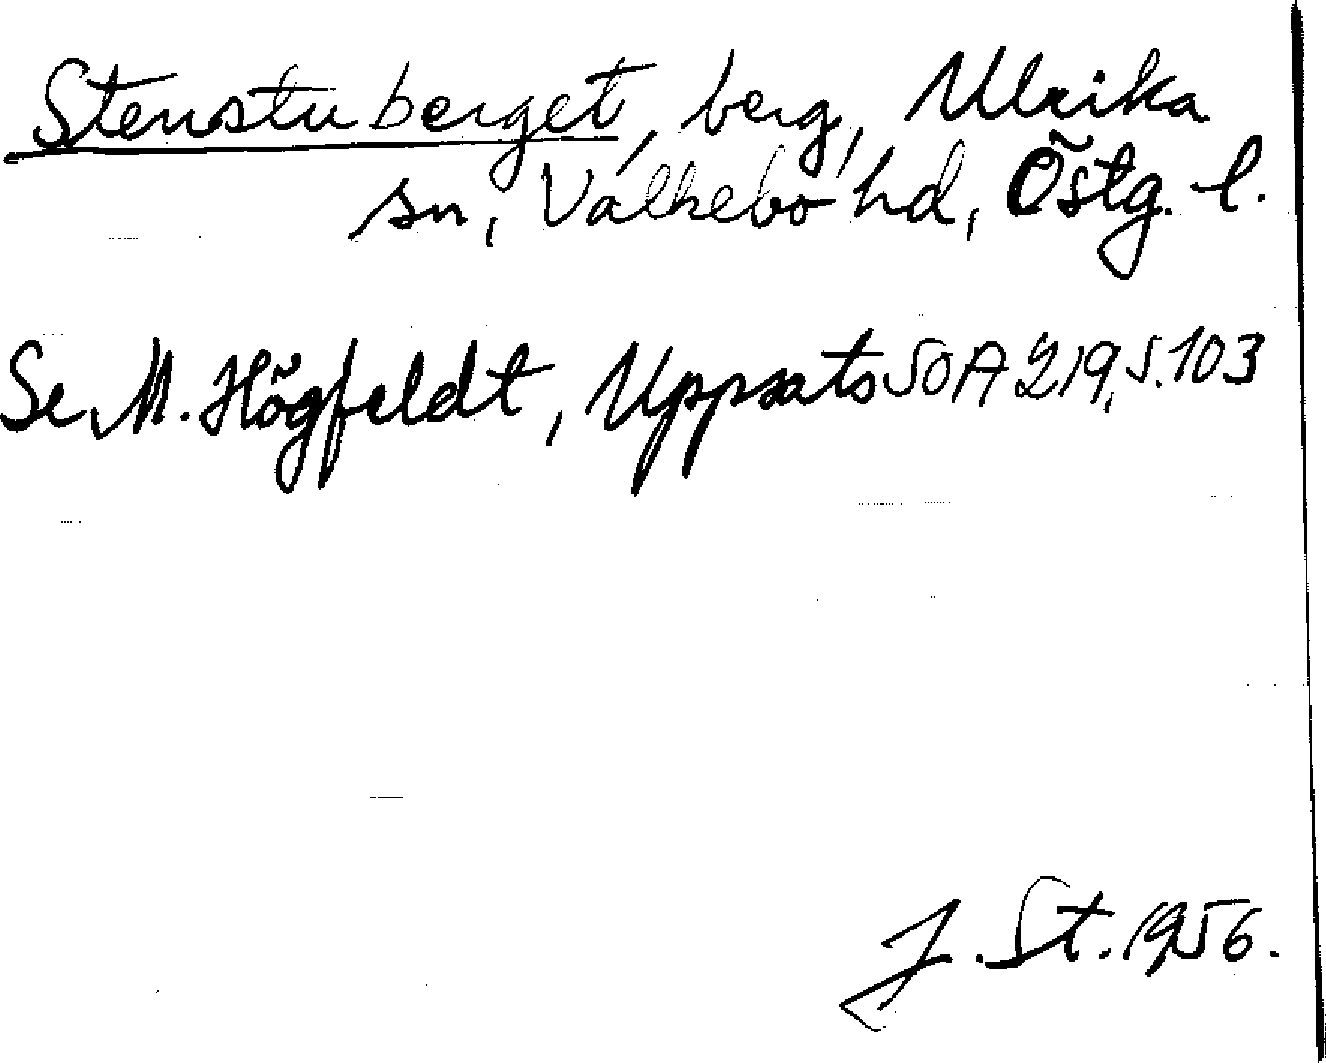 Stenstuberget, berg, Ulrika
sn, Valkebo hd, Östg. l.
Se M. Högfeldt, Uppsats SOA 219, s. 103
J. St. 1956.